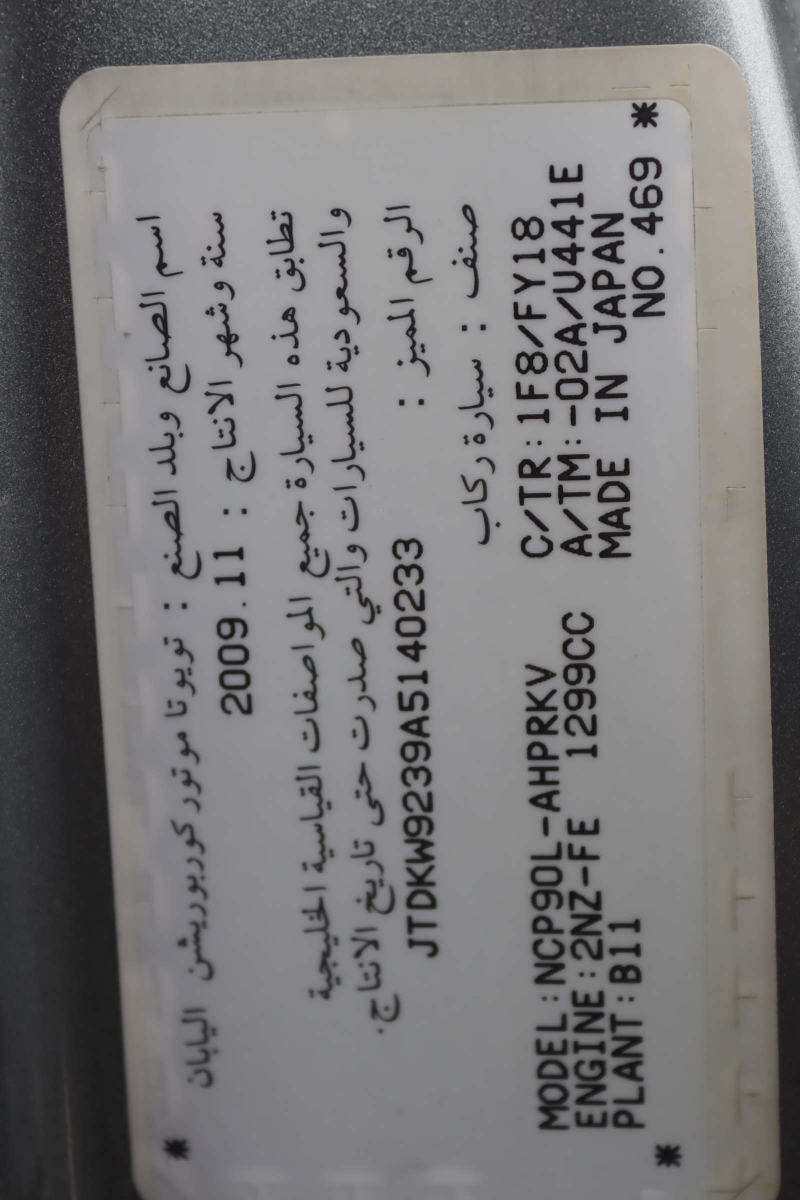 *
اسم الصانع وبلد الصنع : تويوتا موتور كوربوريشن اليابان
سنة وشهر الانتاج : 2009.11
تطابق هذه السيارة جميع المواصفات القياسية الخليجية
والسعودية للسيارات والتي صدرت حتى تاريخ الانتاج.
الرقم المميز : JTDKW9239A5140233
صنف : سيارة ركاب
MODEL:NCP90L-AHPRKV C/TR:1F8/FY18
ENGINE:2NZ-FE 1299CC A/TM:-02A/U441E
PLANT:B11 MADE IN JAPAN
* NO.469 *